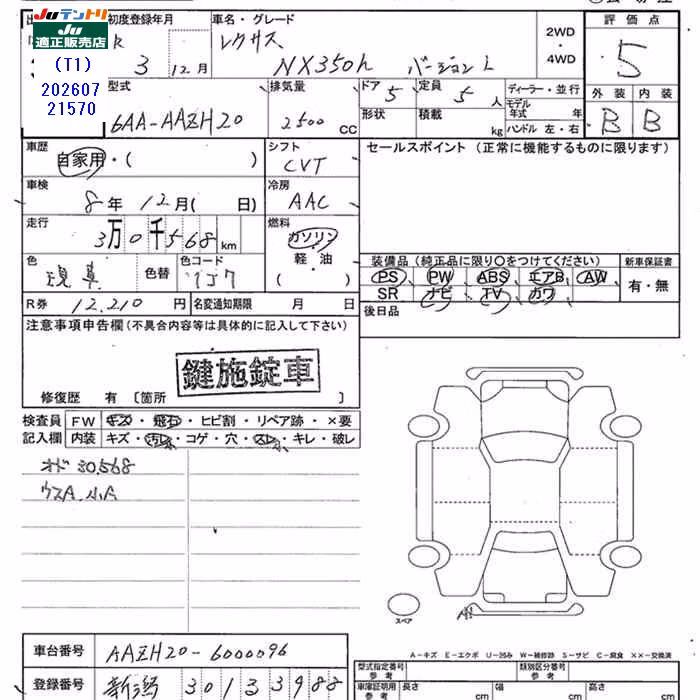 JUテントリ 初度登録年月 車名・グレード
適正販売店 3 12月 レクサス NX350h バージョンL 2WD・4WD
評価点 5
(T1)
202607
21570
型式 6AA-AAZH20 排気量 2500 CC ドア 5 定員 5 人 ディーラー・並行
形状 積載 kg モデル年式 年 ハンドル 左・右
外装 B 内装 B
車歴 自家用・( ) シフト CVT セールスポイント (正常に機能するものに限ります)
車検 8年 12月( 日) 冷房 AAC
走行 3万0千568km 燃料 ガソリン 軽・油 ( )
色 色替 色コード
装備品 (純正品に限り○をつけてください) 新車保証書
PS PW ABS エアB AW 有・無
SR ナビ TV カワ
R券 12,210円 名変通知期限 月 日 後日品
注意事項申告欄 (不具合内容等は具体的に記入して下さい)
鍵施錠車
修復歴 有 〔箇所 〕
検査員 FW キズ・飛石・ヒビ割・リペア跡・×要
記入欄 内装 キズ・汚れ・コゲ・穴・スレ・キレ・破レ
オド30,568
ウスA.小A
スペア A1
車台番号 AAZH20-6000096
登録番号 新潟 301 3 3988
A-キズ E-エクボ U-凹み W-補修跡 S-サビ C-腐食 ××-交換済
型式指定番号 類別区分番号
参考 参考
車庫証明用 長さ 幅 高さ
参考 cm cm cm